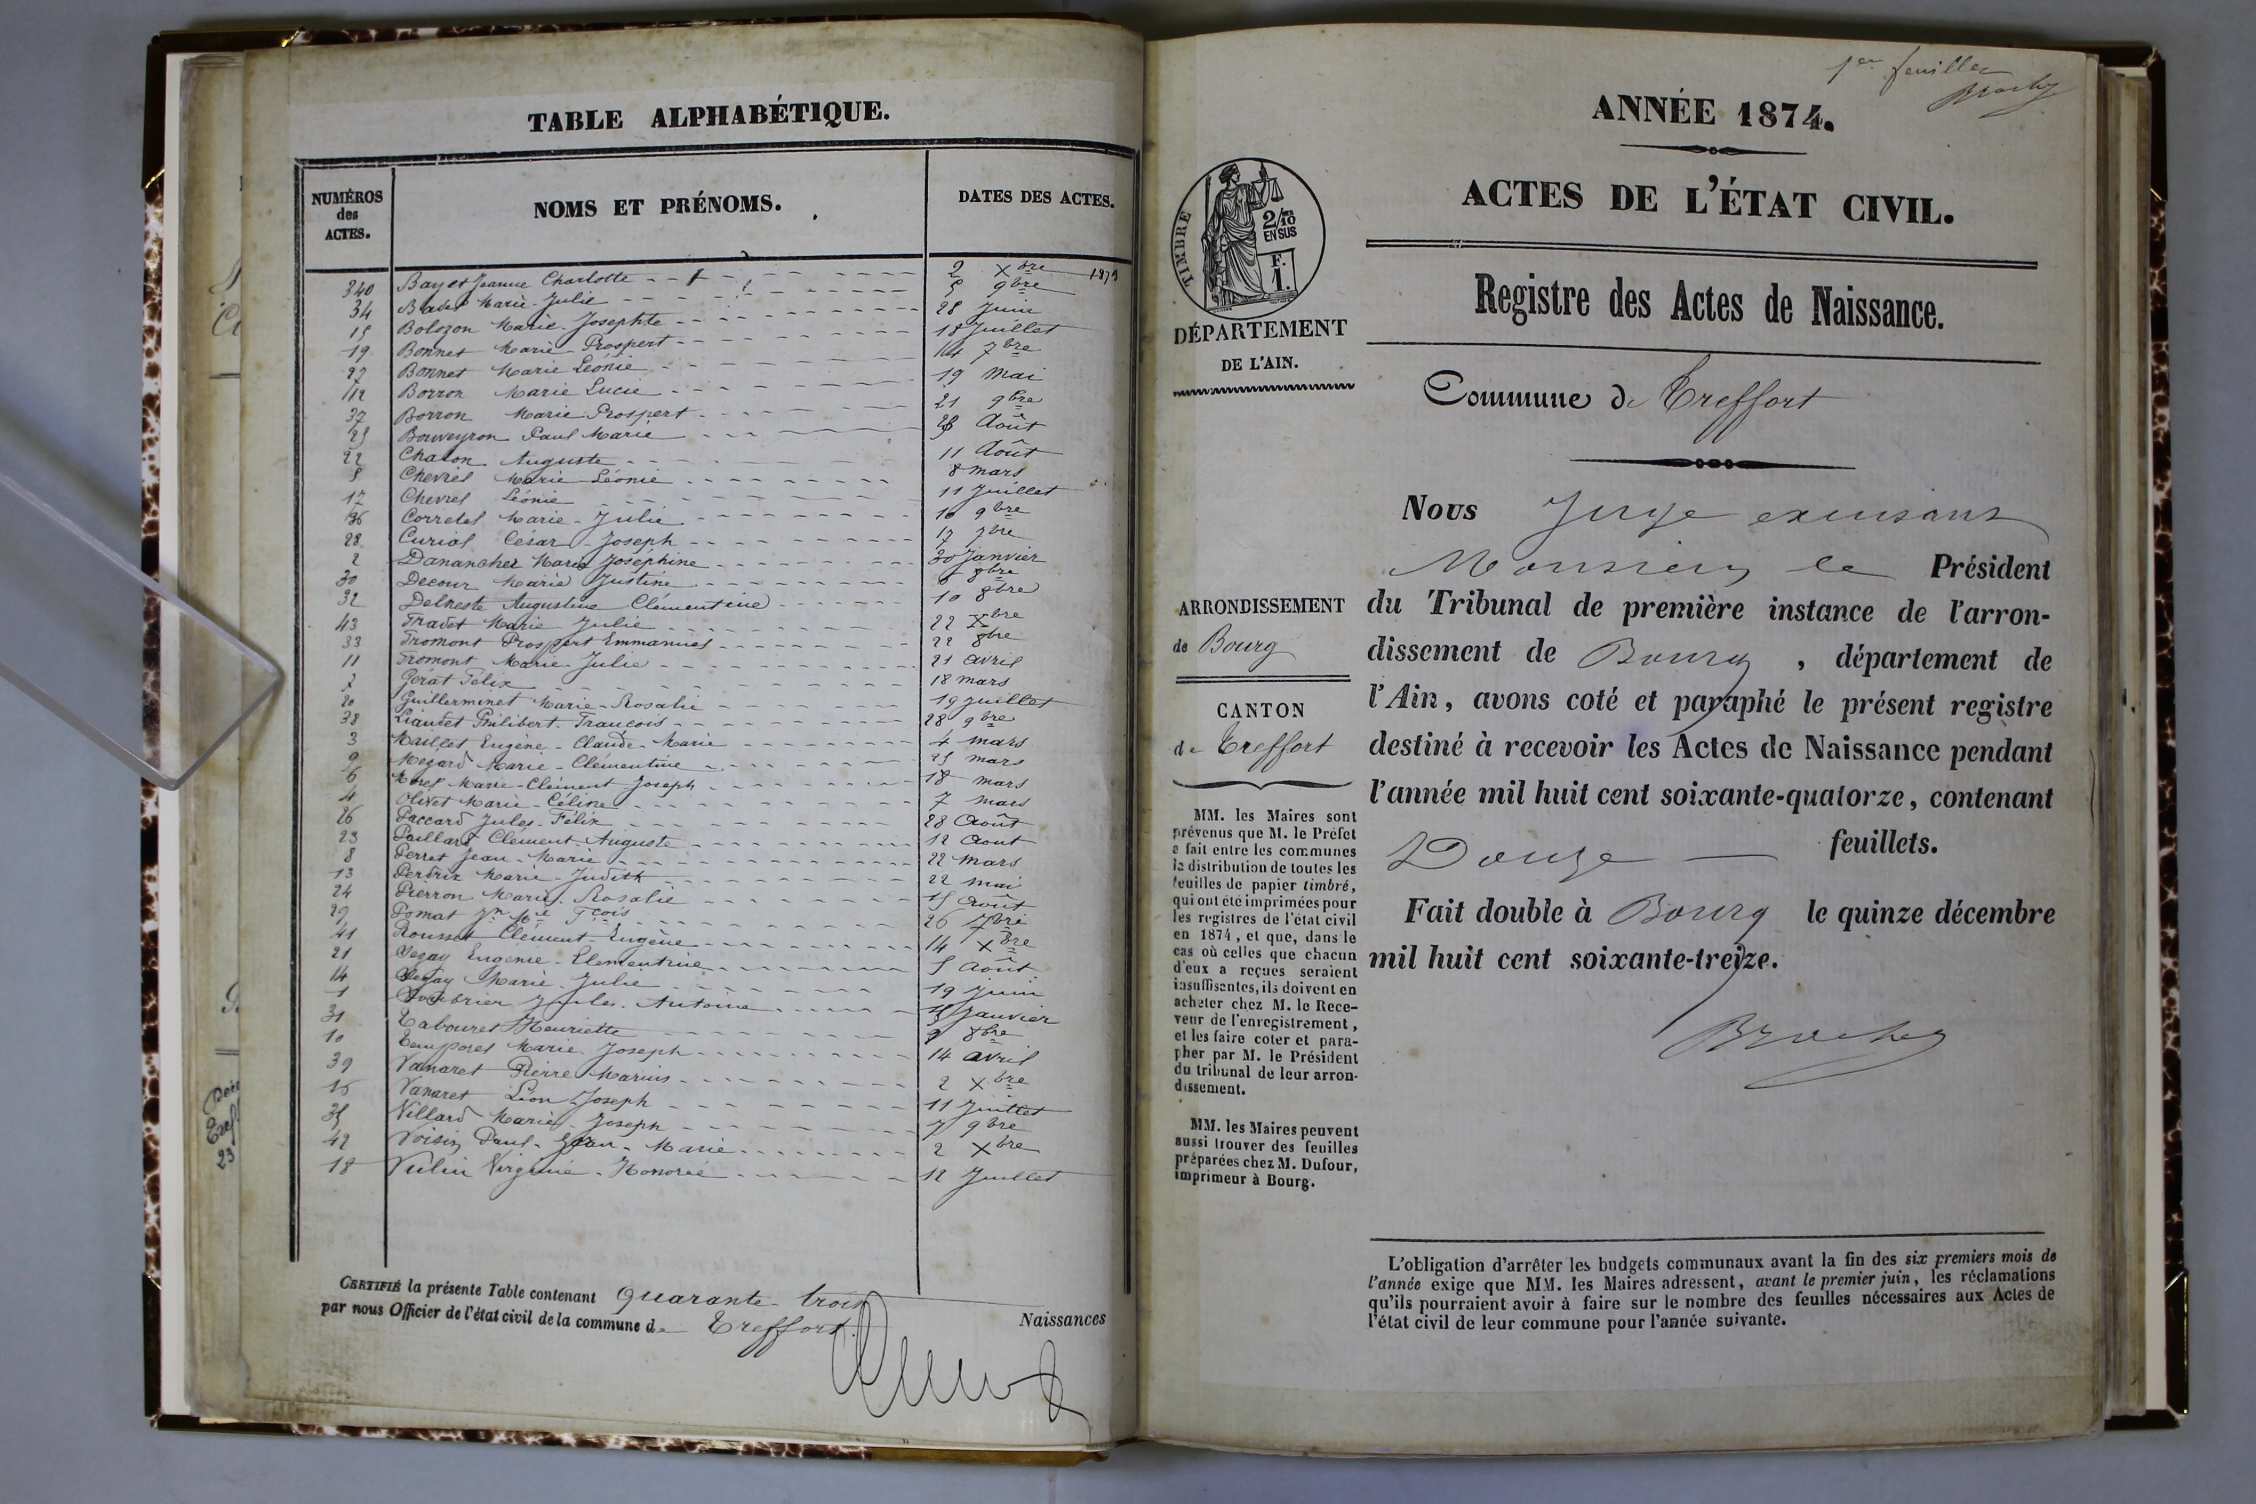 TABLE ALPHABÉTIQUE.
NUMÉROS des ACTES.
NOMS ET PRÉNOMS.
DATES DES ACTES.
Bayet Jeanne Charlotte 2 Xbre 1873
34 Marie Julie 5 9bre
15 Bolozon Marie Josephte 28 Juin
19 Bonnet Marie Prospert 18 Juillet
27 Bonnet Marie Léonie 14 7bre
12 Borron Marie Lucie 19 Mai
37 Borron Marie Prospert 21 9bre
25 Bouveyron Paul Marie Août
22 Chaton Auguste 11 Août
5 Chevrel Marie Léonie 8 mars
17 Chevrel Léonie 11 Juillet
36 Corretel Marie Julie 10 9bre
28 Curial César Joseph 17 7bre
2 Danancher Marie Joséphine 30 Janvier
30 Decour Marie Justine 8bre
32 Augustine Clémentine 10 8bre
43 Fradet Marie Julie 22 Xbre
33 Fromont Prospert Emmanuel 22 8bre
11 Fromont Marie Julie 21 avril
7 Gérat Félix 18 mars
20 Guillerminet Marie Rosalie 19 Juillet
38 Liaudet Philibert François 28 9bre
3 Maillet Eugène Claude Marie 4 mars
9 Megard Marie Clémentine 25 mars
6 Morel Marie Clément Joseph 18 mars
4 Olivet Marie Céline 7 mars
26 Paccard Jules Félix 28 Août
23 Paillard Clément Auguste 12 Aout
8 Perret Jean Marie 22 mars
13 Perdrix Marie Judith 22 mai
24 Pierron Marie Rosalie 15 Août
29 Pomat Jn Mie Fçois 26 7bre
41 Rousset Clément Eugène 14 Xbre
21 Segay Eugénie Clémentine 5 Août
14 Segay Marie Julie 19 Juin
1 Jules Antoine Janvier
31 Tabouret Henriette 9 8bre
10 Temporel Marie Joseph 14 avril
39 Vanaret Pierre Marius 2 Xbre
16 Vanaret Léon Joseph 11 Juillet
35 Villard Marie Joseph 7 9bre
42 Voisin Paul Jean Marie 2 Xbre
18 Vulin Virginie Honorée 12 Juillet
CERTIFIÉ la présente Table contenant quarante trois Naissances
par nous Officier de l'état civil de la commune de Treffort.
1er feuillet
Brochy
ANNÉE 1874.
ACTES DE L'ÉTAT CIVIL.
Registre des Actes de Naissance.
TIMBRE
2/10 EN SUS
F. 1.
DÉPARTEMENT
DE L'AIN.
Commune de Treffort
Nous Juge
Monsieur le Président
du Tribunal de première instance de l'arron-
dissement de Bourg, département de
l'Ain, avons coté et paraphé le présent registre
destiné à recevoir les Actes de Naissance pendant
l'année mil huit cent soixante-quatorze, contenant
Douze feuillets.
Fait double à Bourg le quinze décembre
mil huit cent soixante-treize.
Brochy
ARRONDISSEMENT
de Bourg
CANTON
de Treffort
MM. les Maires sont
prévenus que M. le Préfet
a fait entre les communes
la distribution de toutes les
feuilles de papier timbré,
qui ont été imprimées pour
les registres de l'état civil
en 1874, et que, dans le
cas où celles que chacun
d'eux a reçues seraient
insuffisantes, ils doivent en
acheter chez M. le Rece-
veur de l'enregistrement,
et les faire coter et para-
pher par M. le Président
du tribunal de leur arron-
dissement.
MM. les Maires peuvent
aussi trouver des feuilles
préparées chez M. Dufour,
imprimeur à Bourg.
L'obligation d'arrêter les budgets communaux avant la fin des six premiers mois de
l'année exige que MM. les Maires adressent, avant le premier juin, les réclamations
qu'ils pourraient avoir à faire sur le nombre des feuilles nécessaires aux Actes de
l'état civil de leur commune pour l'année suivante.